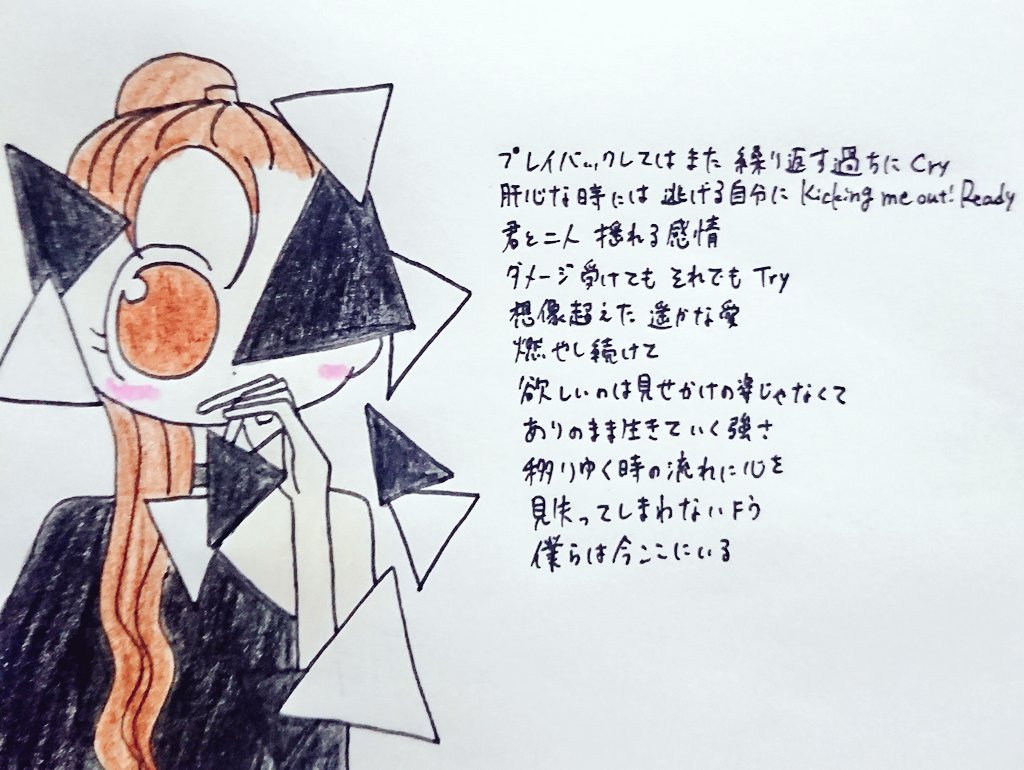 プレイバックしてはまた 繰り返す過ちに Cry
肝心な時には 逃げる自分に Kicking me out! Ready
君と二人 揺れる感情
ダメージ受けても それでも Try
想像超えた 遥かな愛
燃やし続けて
欲しいのは見せかけの姿じゃなくて
ありのまま生きていく強さ
移りゆく時の流れに心を
見失ってしまわないよう
僕らは今ここにいる